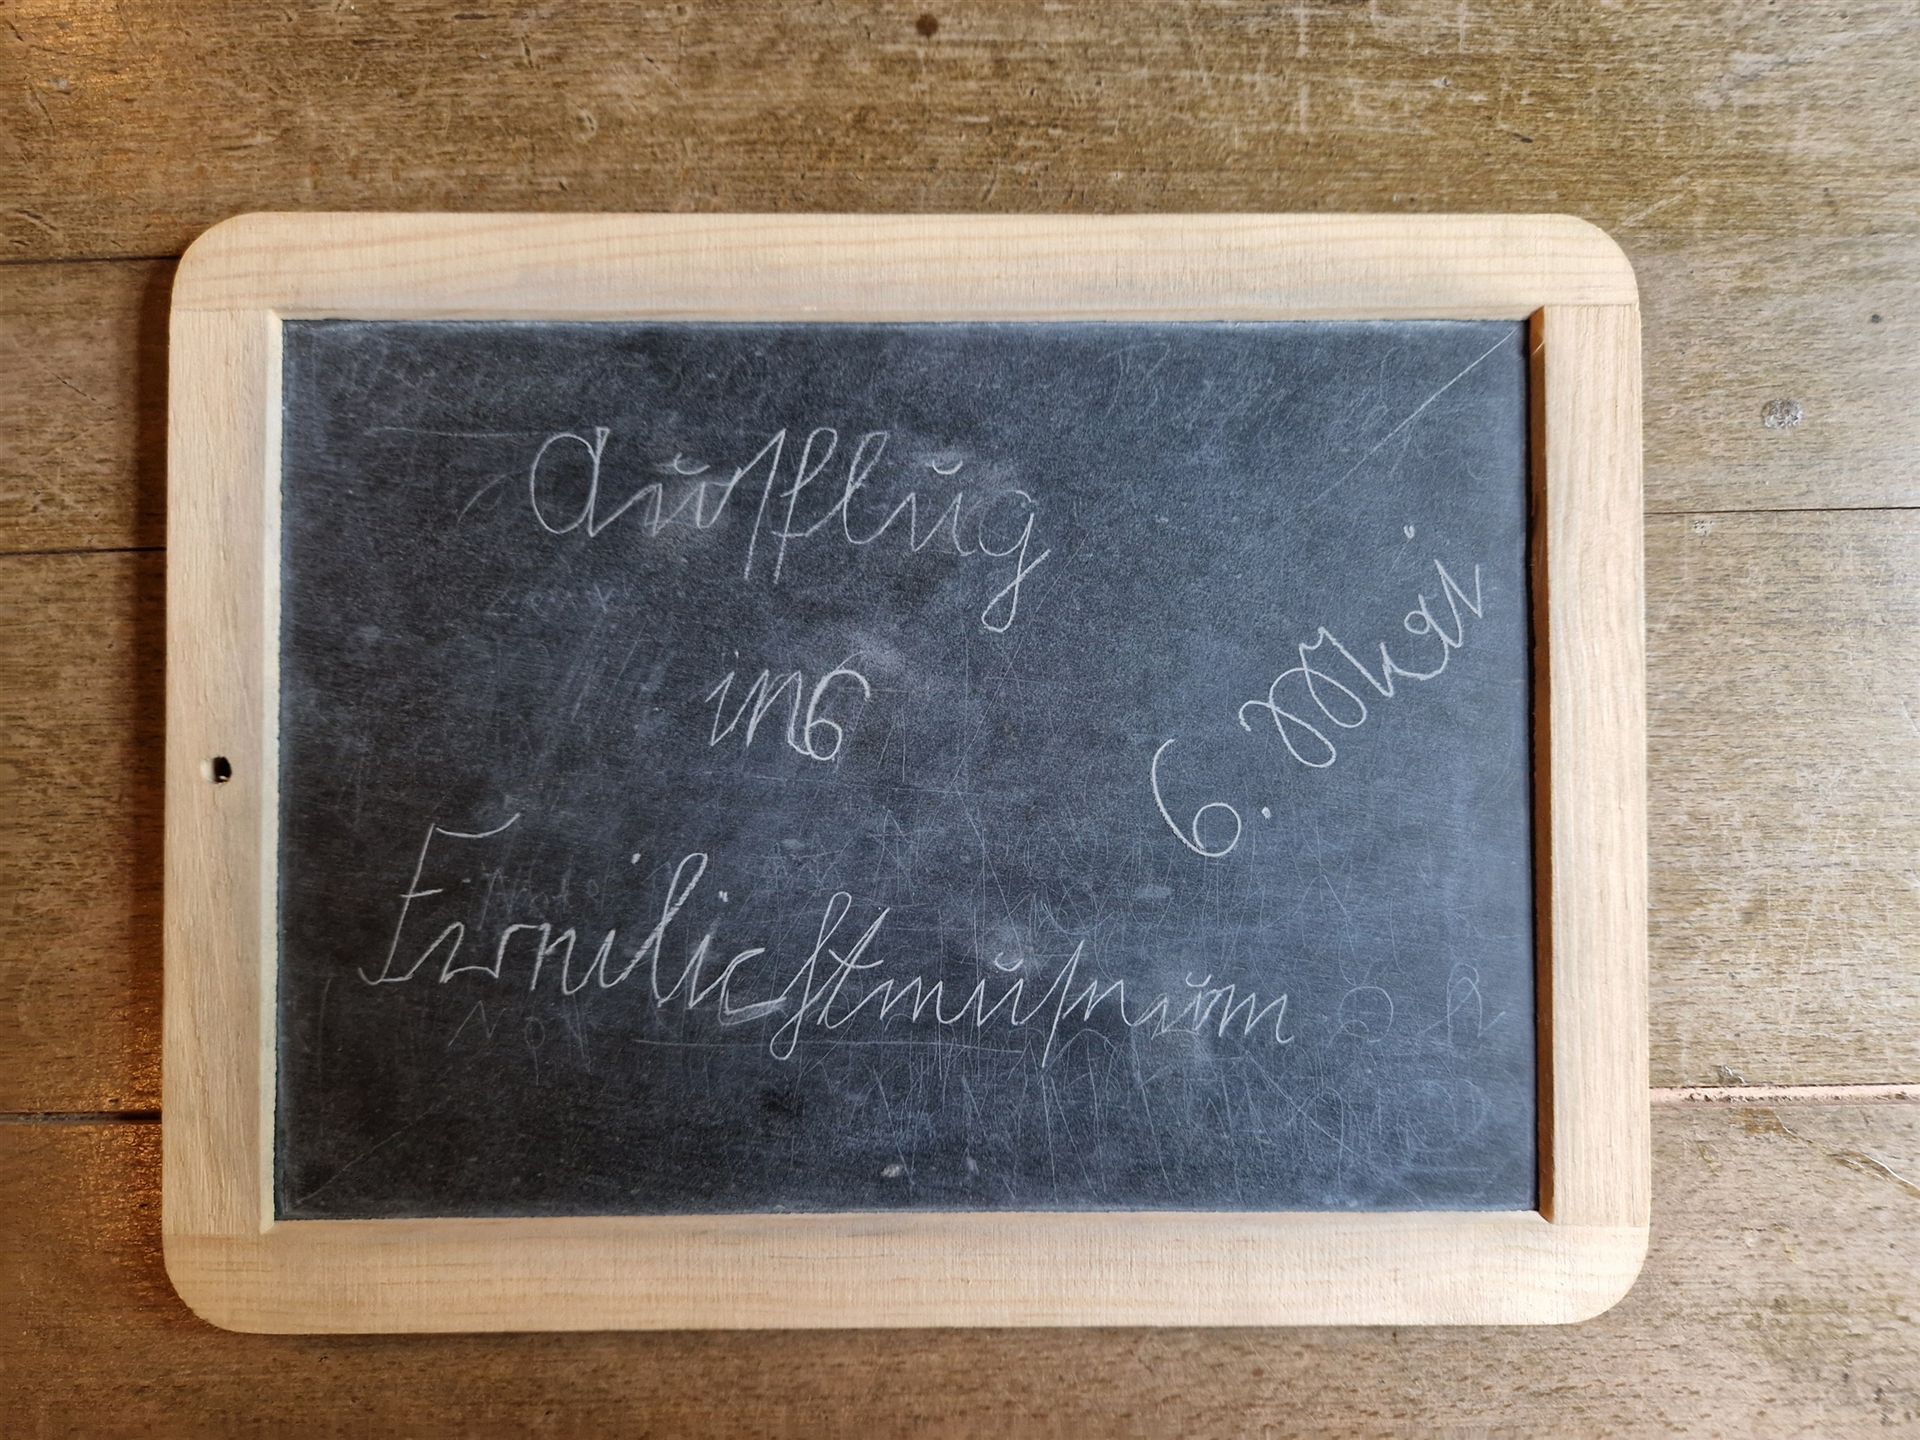 Ausflug
ins
Freilichtmuseum
6. Mai